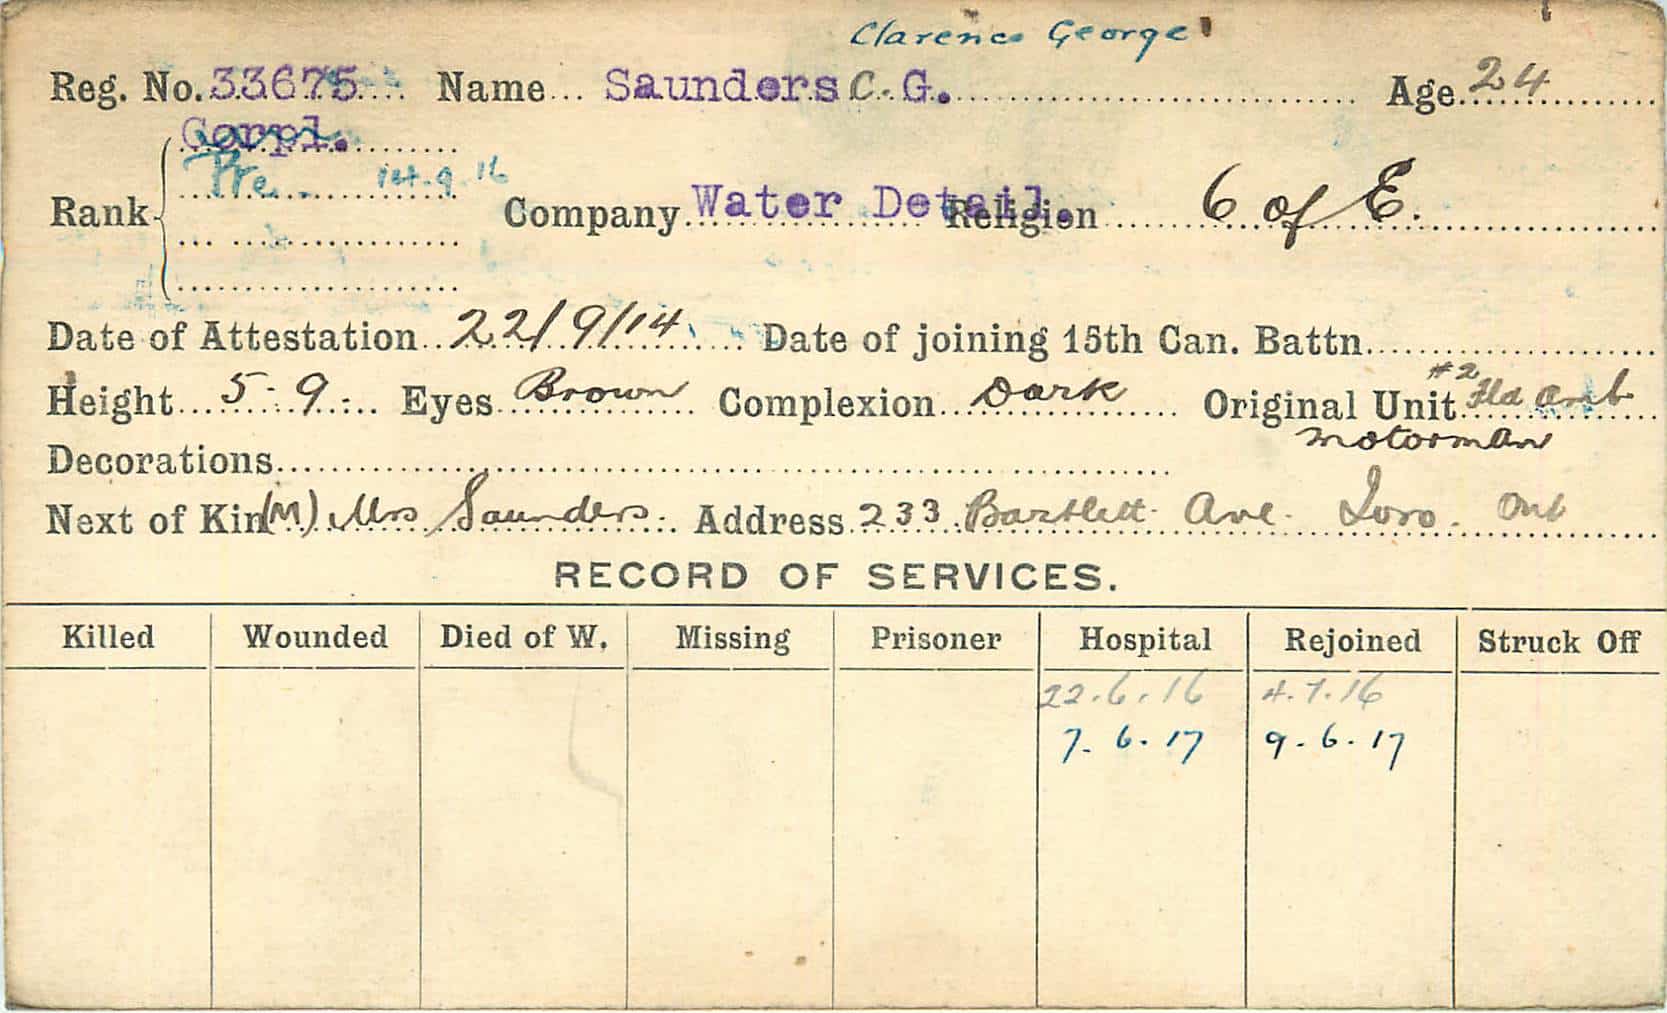 Clarence George
Reg. No. 33675 Name Saunders C. G. Age 24
Corpl.
Pte. 14.9.16
Rank Company Water Detail. Religion C of E.
Date of Attestation 22/9/14 Date of joining 15th Can. Battn.
#2
Height 5-9 Eyes Brown Complexion Dark Original Unit Fld Amb
motorman
Decorations
Next of Kin (M) Mrs Saunders. Address 233 Bartlett Ave. Toro. Ont
RECORD OF SERVICES.
Killed Wounded Died of W. Missing Prisoner Hospital Rejoined Struck Off
22.6.16 4.7.16
7.6.17 9.6.17